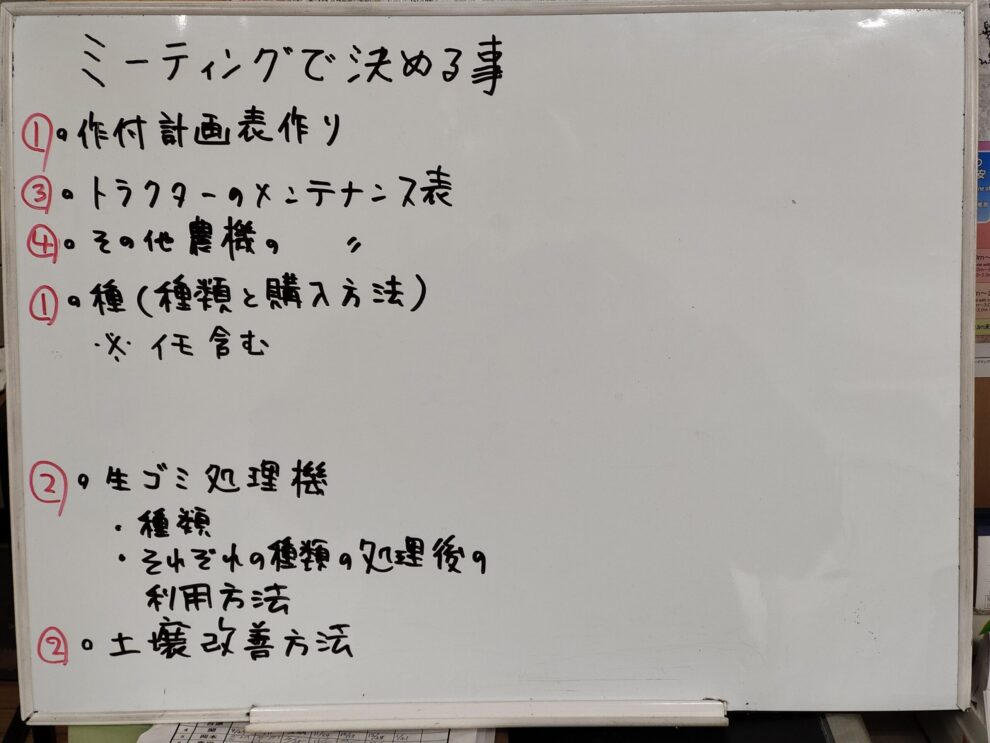 ミーティングで決める事
①・作付計画表作り
③・トラクターのメンテナンス表
④・その他農機の 〃
①・種(種類と購入方法)
※イモ含む
②・生ゴミ処理機
・種類
・それぞれの種類の処理後の
利用方法
②・土壌改善方法